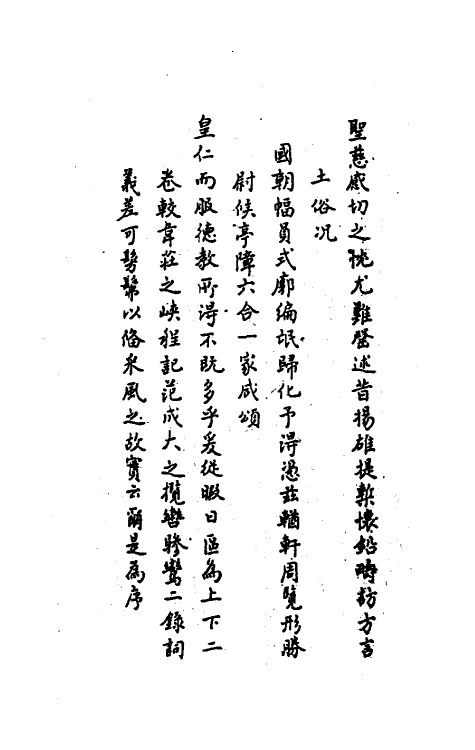 聖慈感切之忱尤難罄述昔揚雄提槧懷鉛時訪方言
土俗况
國朝幅員式廓編氓歸化予得憑茲輶軒周覽形勝
尉候亭障六合一家咸頌
皇仁而服德教所得不既多乎爰從暇日區為上下二
卷較韋莊之峽程記范成大之攬轡驂鸞二錄詞
義差可髣髴以俻采風之故實云爾是為序